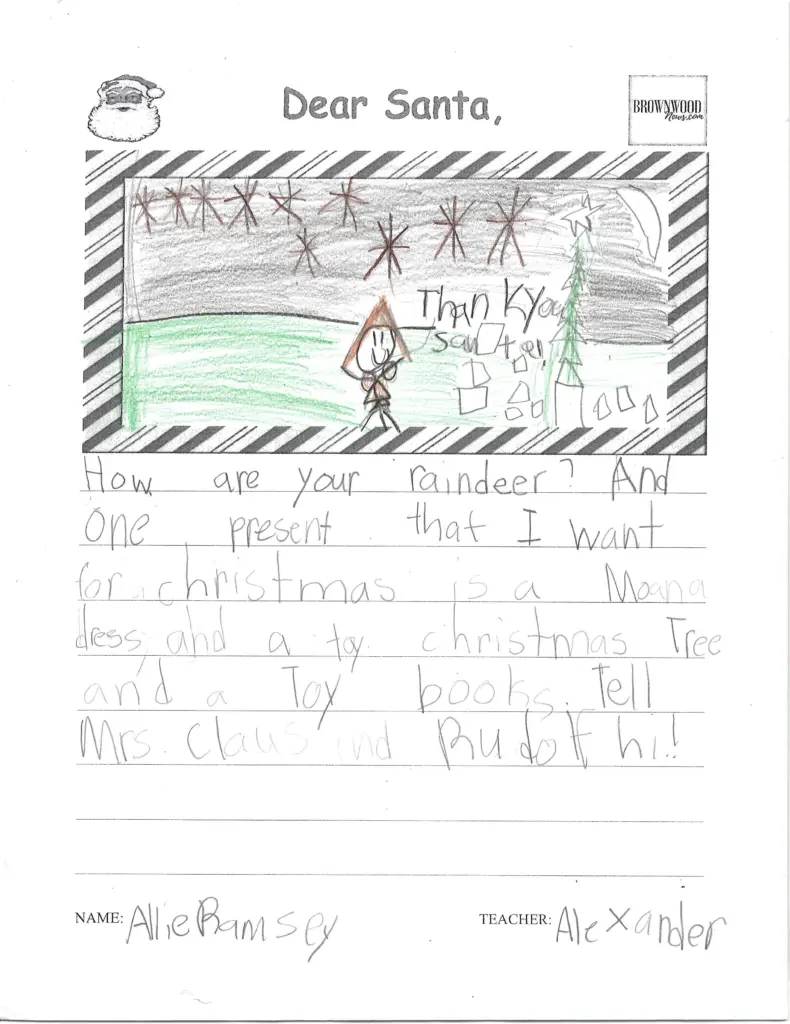 Dear Santa,
BROWNWOOD
News.com
Thank you
santa
How are your raindeer? And
one present that I want
for christmas is a Moana
dress, and a toy christmas Tree
and a Toy books. Tell
Mrs. Claus and Rudolf hi!
NAME: Allie Ramsey
TEACHER: Alexander